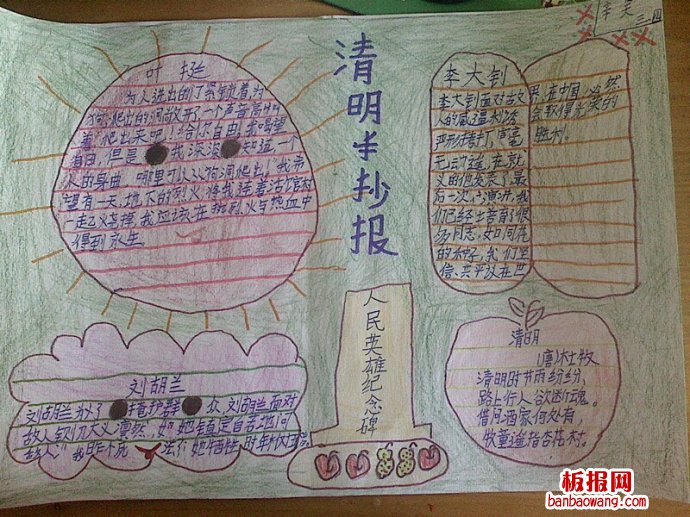 叶挺
为人进出的门紧锁着为
狗爬出的洞敞开了一个声音高叫
着"爬出来吧！给你自由！我渴望
自由，但是 我深深 知道一个
人的身曲 哪里可以从狗洞爬出！"我希
望有一天地下的烈火将我连着活棺材
一起烧掉我应该在热烈火与热血中
得到永生。
清明手抄报
李大钊
李大钊面对敌
人的威逼利诱
严刑拷打，毫
无动遥，在就
义的他发表了最
后一次演讲，我
们已经培育了很
多同志，如同花
的种子，我们坚
信，共 在世
界，在中国必然
会取得光荣的
胜利。
刘胡兰
刘胡兰为了 掩护群 众，刘胡兰面对
敌人 大义凛然，如 她镇定自若地问
敌人"我咋个死 法？她牺牲时年仅
人民英雄纪念碑
清明
(唐)杜牧
清明时节雨纷纷，
路上行人欲断魂。
借月酒家何处有
牧童遥指杏花村。
李英
三、四
板报网
banbaowang.com